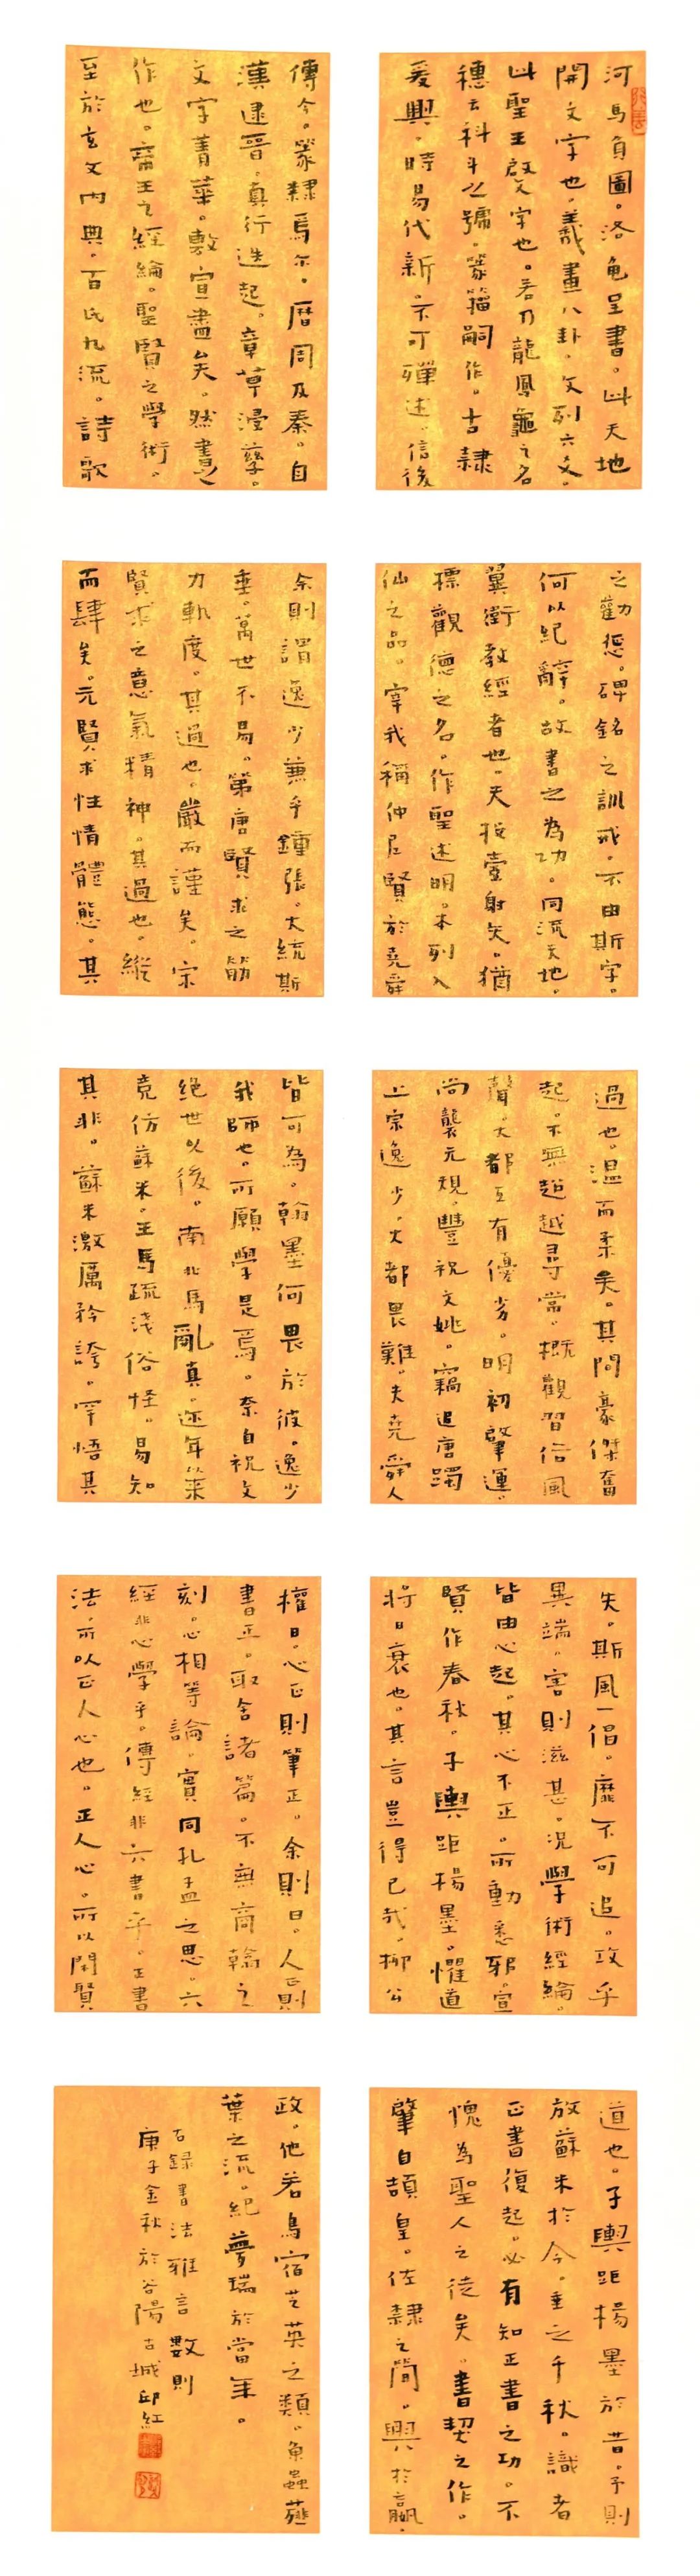 河馬負圖。洛龜呈書。此天地
開文字也。羲畫八卦。文列六爻。
此聖王啟文字也。若乃龍鳳龜之名
穗云科斗之號。篆籀嗣作。古隸
爰興。時易代新。不可殫述。信後
傳今。篆隸焉尔。歷周及秦。自
漢逮晉。真行迭起。章草浸孳。
文字菁華。敷宣盡矣。然書之
作也。帝王之經綸。聖賢之學術。
至於玄文內典。百氏九流。詩歌
之勸懲。碑銘之訓戒。不由斯字。
何以紀辭。故書之為功。同流天地。
翼衛教經者也。夫投壺射矢。猶
標觀德之名。作聖述明。本列入
仙之品。宰我稱仲尼賢於堯舜
余則謂逸少兼乎鍾張。大統斯
垂。萬世不易。第唐賢求之筋
力軌度。其過也。嚴而謹矣。宋
賢求之意氣精神。其過也。縱
而肆矣。元賢求性情體態。其
過也。溫而柔矣。其間豪傑奮
起。不無超越尋常。概觀習俗風
聲。大都互有優劣。明初肇運。
尚襲元規。豐祝文姚。竊追唐躅
上宗逸少。大都畏難。夫堯舜人
皆可為。翰墨何畏於彼。逸少
我師也。所願學是焉。奈自祝文
絕世以後。南北馬亂真。迩年以來
竞仿蘇米。王馬疏淺俗怪。易知
其非。蘇米激厲矜誇。罕悟其
失。斯風一倡。靡不可追。攻乎
異端。害則滋甚。況學術經綸。
皆由心起。其心不正。所動悉邪。宣
賢作春秋。子輿距楊墨。懼道
將日衰也。其言豈得已哉。柳公
權曰。心正則筆正。余則曰。人正則
書正。取舍諸篇。不無商翰之
刻。心相等論。實同孔孟之思。六
經非心學乎。傳經非六書乎。正書
法。所以正人心也。正人心。所以閑賢
道也。子輿距楊墨於昔。予則
放蘇米於今。垂之千秋。識者
正書復起。必有知正書之功。不
愧為聖人之徒矣。書契之作。
肇自頡皇。佐隸之簡。興於嬴
政。他若鳥宿芝英之類。魚蟲薤
葉之流。紀夢瑞於當年。
右錄書法雅言數則
庚子金秋於谷陽古城邱紅